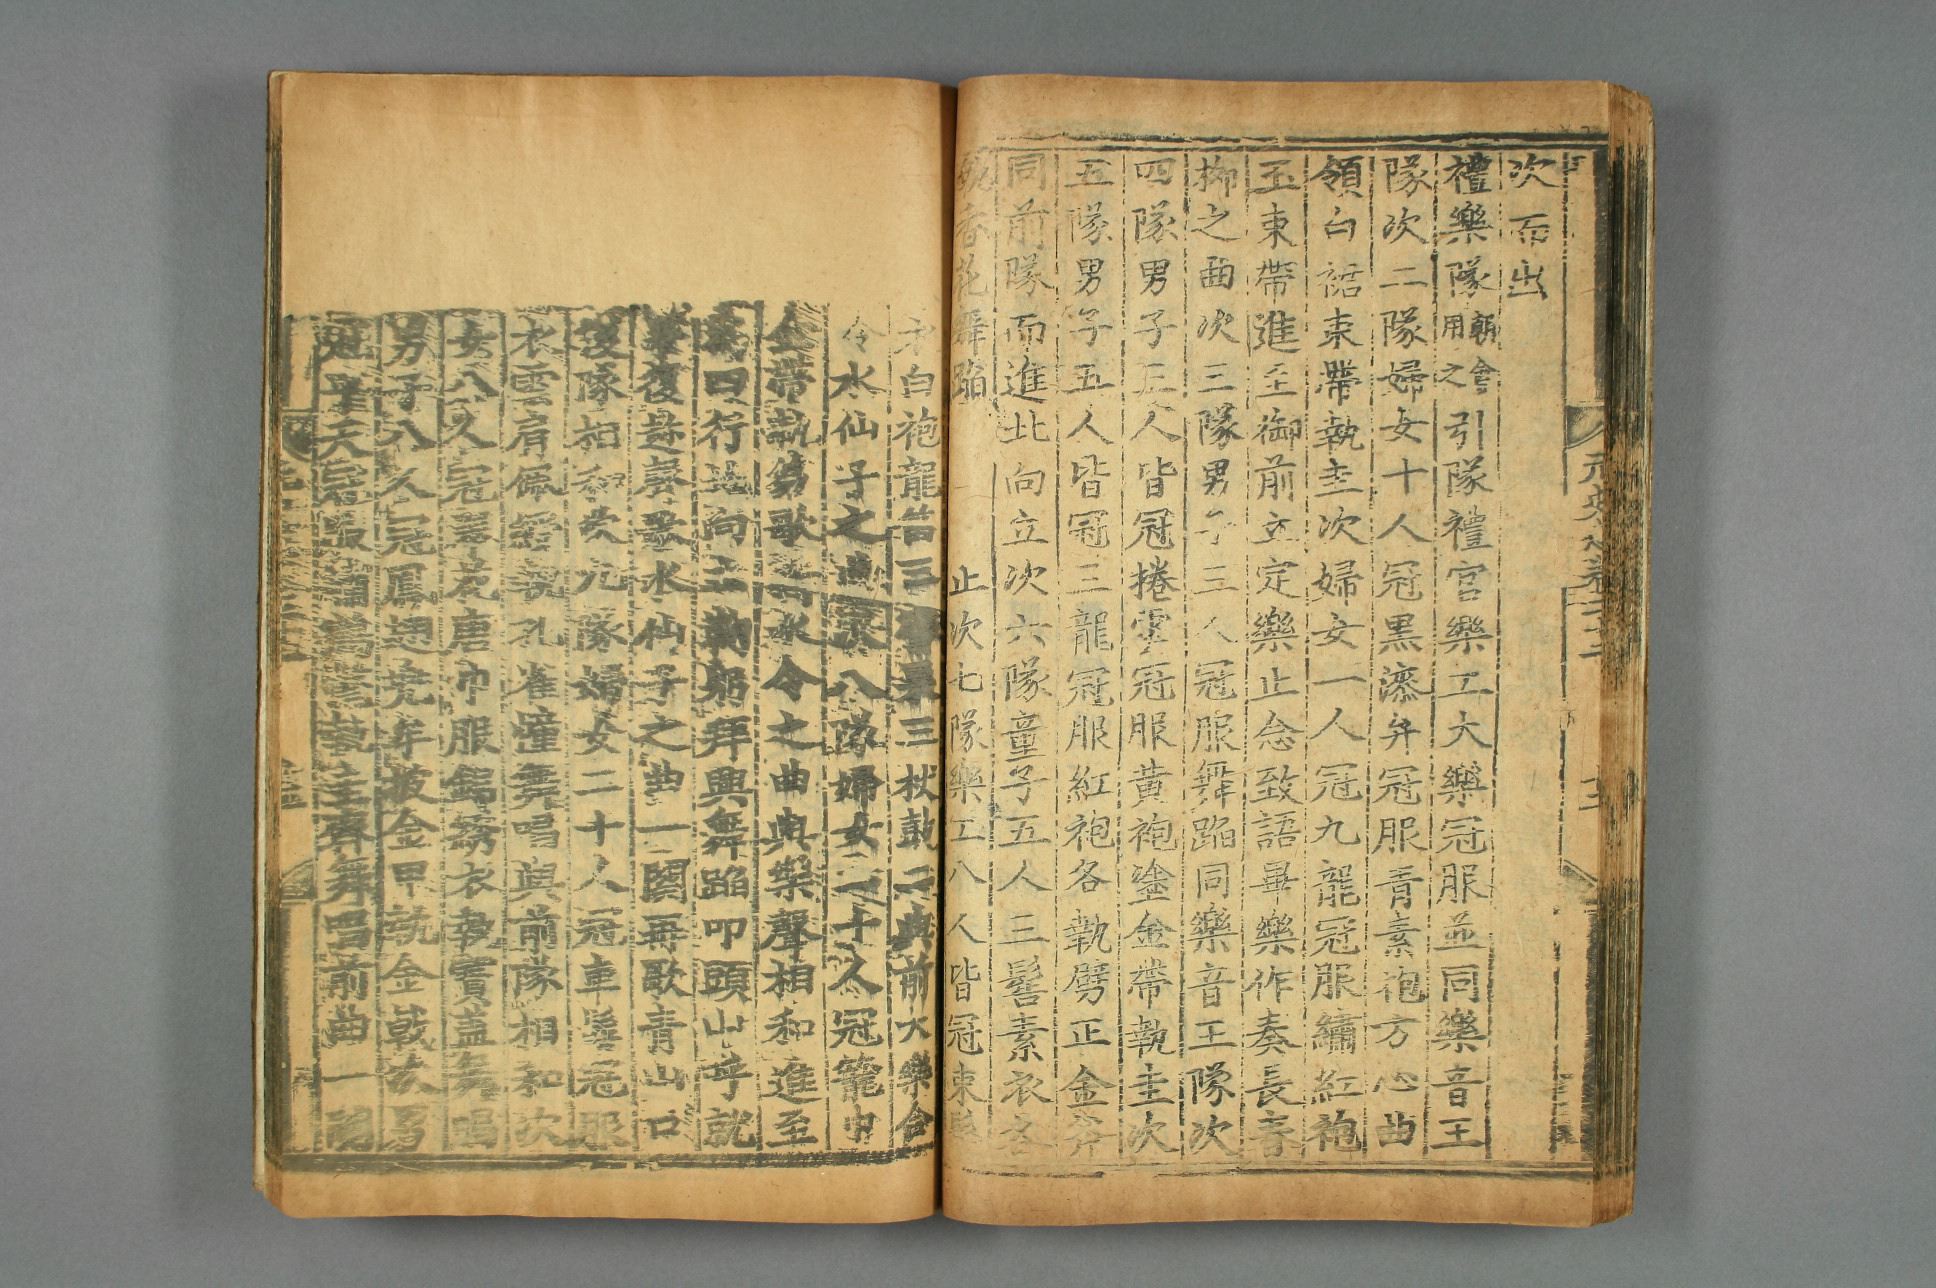 次而出
禮樂隊朝會用之引隊禮官樂工大樂冠服並同樂音王
隊次二隊婦女十人冠黑漆弁冠服青素袍方心曲
領白裙束帶執圭次婦女一人冠九龍冠服繡紅袍
玉束帶進至御前立定樂止念致語畢樂作奏長春
柳之曲次三隊男子三人冠服舞蹈同樂音王隊次
四隊男子三人皆冠捲雲冠服黃袍塗金帶執圭次
五隊男子五人皆冠三龍冠服紅袍各執劈正金斧
同前隊而進北向立次六隊童子五人三髻素衣各
執香花舞蹈 止次七隊樂工八人皆冠束
白袍龍笛三 三杖鼓二與前大樂合
水仙子之曲 八隊婦女二十人冠籠巾
金帶執 歌 水令之曲與樂聲相和進至
四行北向立 躬拜興舞蹈叩頭山呼就
畢復 聲歌水仙子之曲一闋再歌青山口
後隊相和次九隊婦女二十人冠車髻冠服
衣雲肩佩 執孔雀幢舞唱與前隊相和次
女八人冠 花唐巾服錦繡衣執寶蓋舞唱
男子八人冠鳳翅兜牟披金甲執金戟次男
冠 天冠服繡 齊舞唱前曲一闋